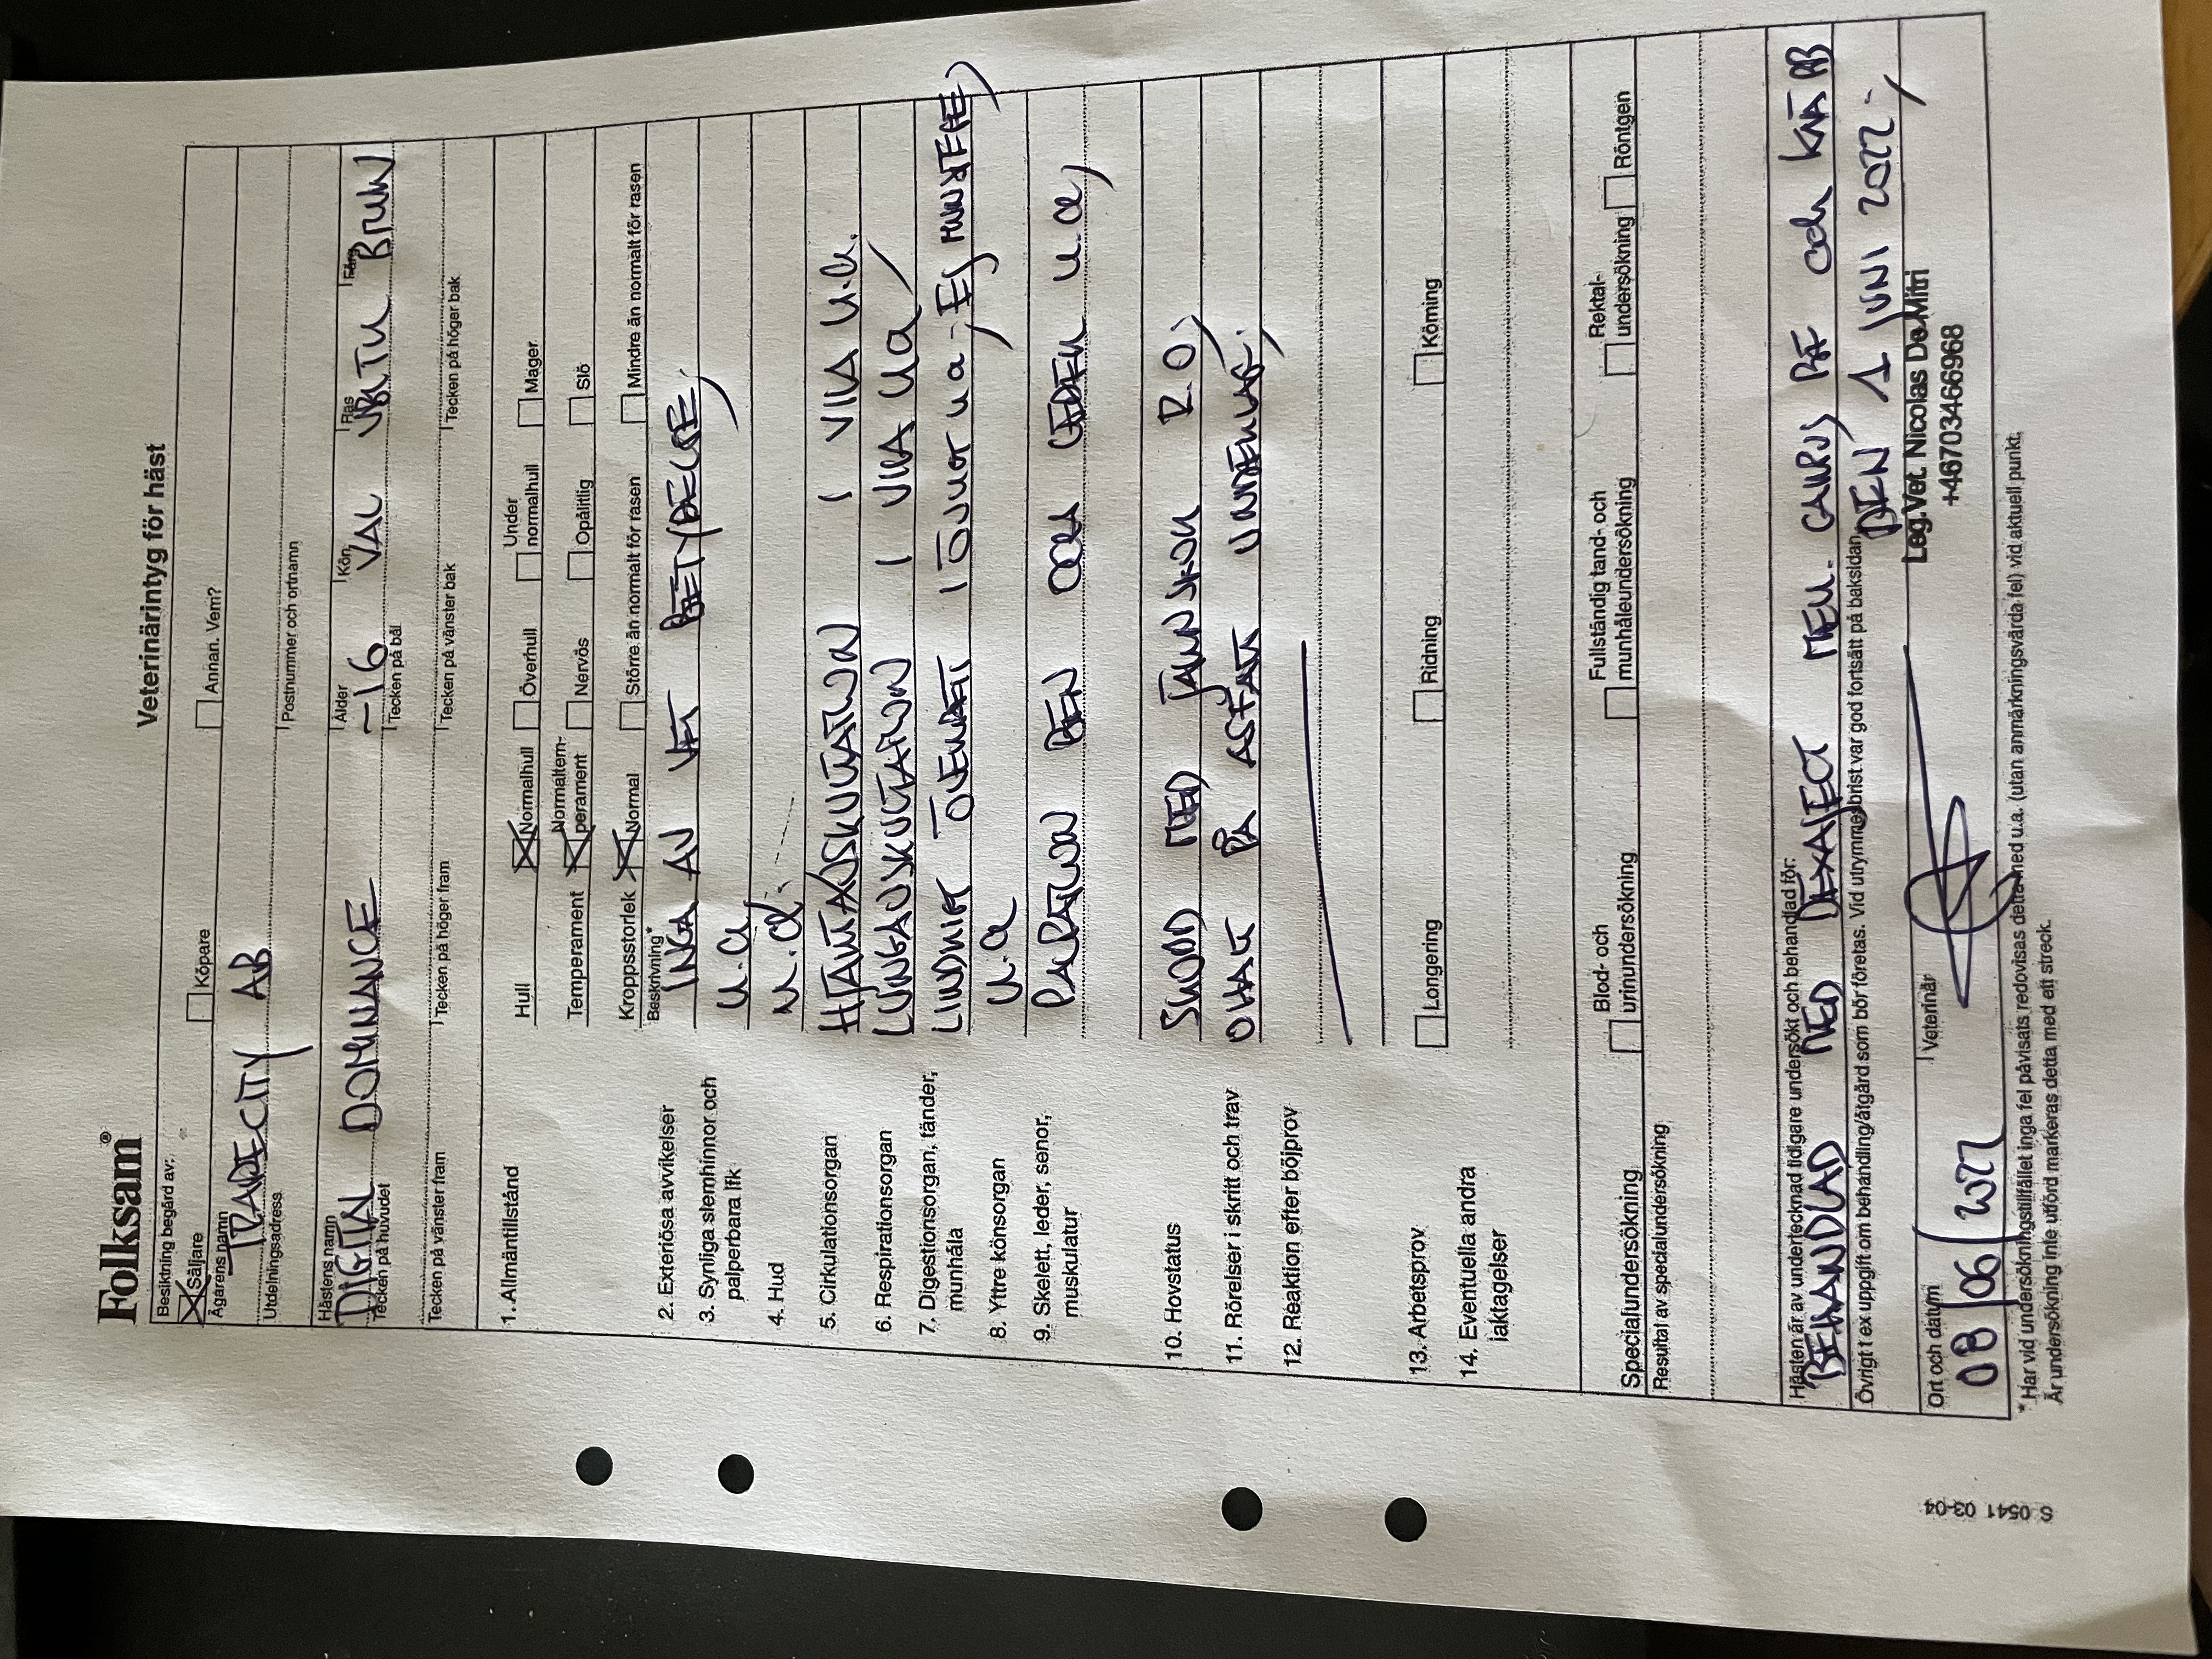 Folksam®
Veterinärintyg för häst
Besiktning begärd av:
Säljare Köpare Annan. Vem?
Ägarens namn
TRAPECITY AB
Utdelningsadress Postnummer och ortnamn
Hästens namn Ålder Kön Ras Färg
DIGITAL DOMINANCE -16 VAL VBTU BRUN
Tecken på huvudet Tecken på bål
Tecken på vänster fram Tecken på höger fram Tecken på vänster bak Tecken på höger bak
1. Allmäntillstånd Hull Normalhull Överhull Under normalhull Mager
Temperament Normaltem-perament Nervös Opålitlig Slö
Kroppsstorlek Normal Större än normalt för rasen Mindre än normalt för rasen
Beskrivning*
2. Exteriösa avvikelser INGA AV VET BETYDELSE
3. Synliga slemhinnor och palperbara lfk u.a
4. Hud u.a.
5. Cirkulationsorgan HJÄRTAUSKULTATION I VILA u.a.
6. Respirationsorgan LUNGAUSKULTATION I VILA ua
7. Digestionsorgan, tänder, munhåla LINDRIGT ÖVERBETT I ÖVRIGT u a, EJ
8. Yttre könsorgan u.a
9. Skelett, leder, senor, muskulatur PALPATION BEN OCH LEDER u.a,
10. Hovstatus SKODD MED JÄRNSKOR R.O,
11. Rörelser i skritt och trav OHALT PÅ ASFALT UNDERLAG.
12. Reaktion efter böjprov
13. Arbetsprov Longering Ridning Körning
14. Eventuella andra iakttagelser
Specialundersökning Blod- och urinundersökning Fullständig tand- och munhåleundersökning Rektal-undersökning Röntgen
Resultat av specialundersökning
Hästen är av undertecknad tidigare undersökt och behandlad för:
BEHANDLAD MED DEXAJECT CARPUS BE och KNÄ BB
Övrigt t ex uppgift om behandling/åtgärd som bör företas. Vid utrymmesbrist var god fortsätt på baksidan.
DEN 1 JUNI 2022
Ort och datum Veterinär
08/06/2022
Leg.Vet. Nicolas De Mitri
+46703466968
*Har vid undersökningstillfället inga fel påvisats redovisas detta med u.a. (utan anmärkningsvärda fel) vid aktuell punkt.
Är undersökning inte utförd markeras detta med ett streck.
S 0541 03-04